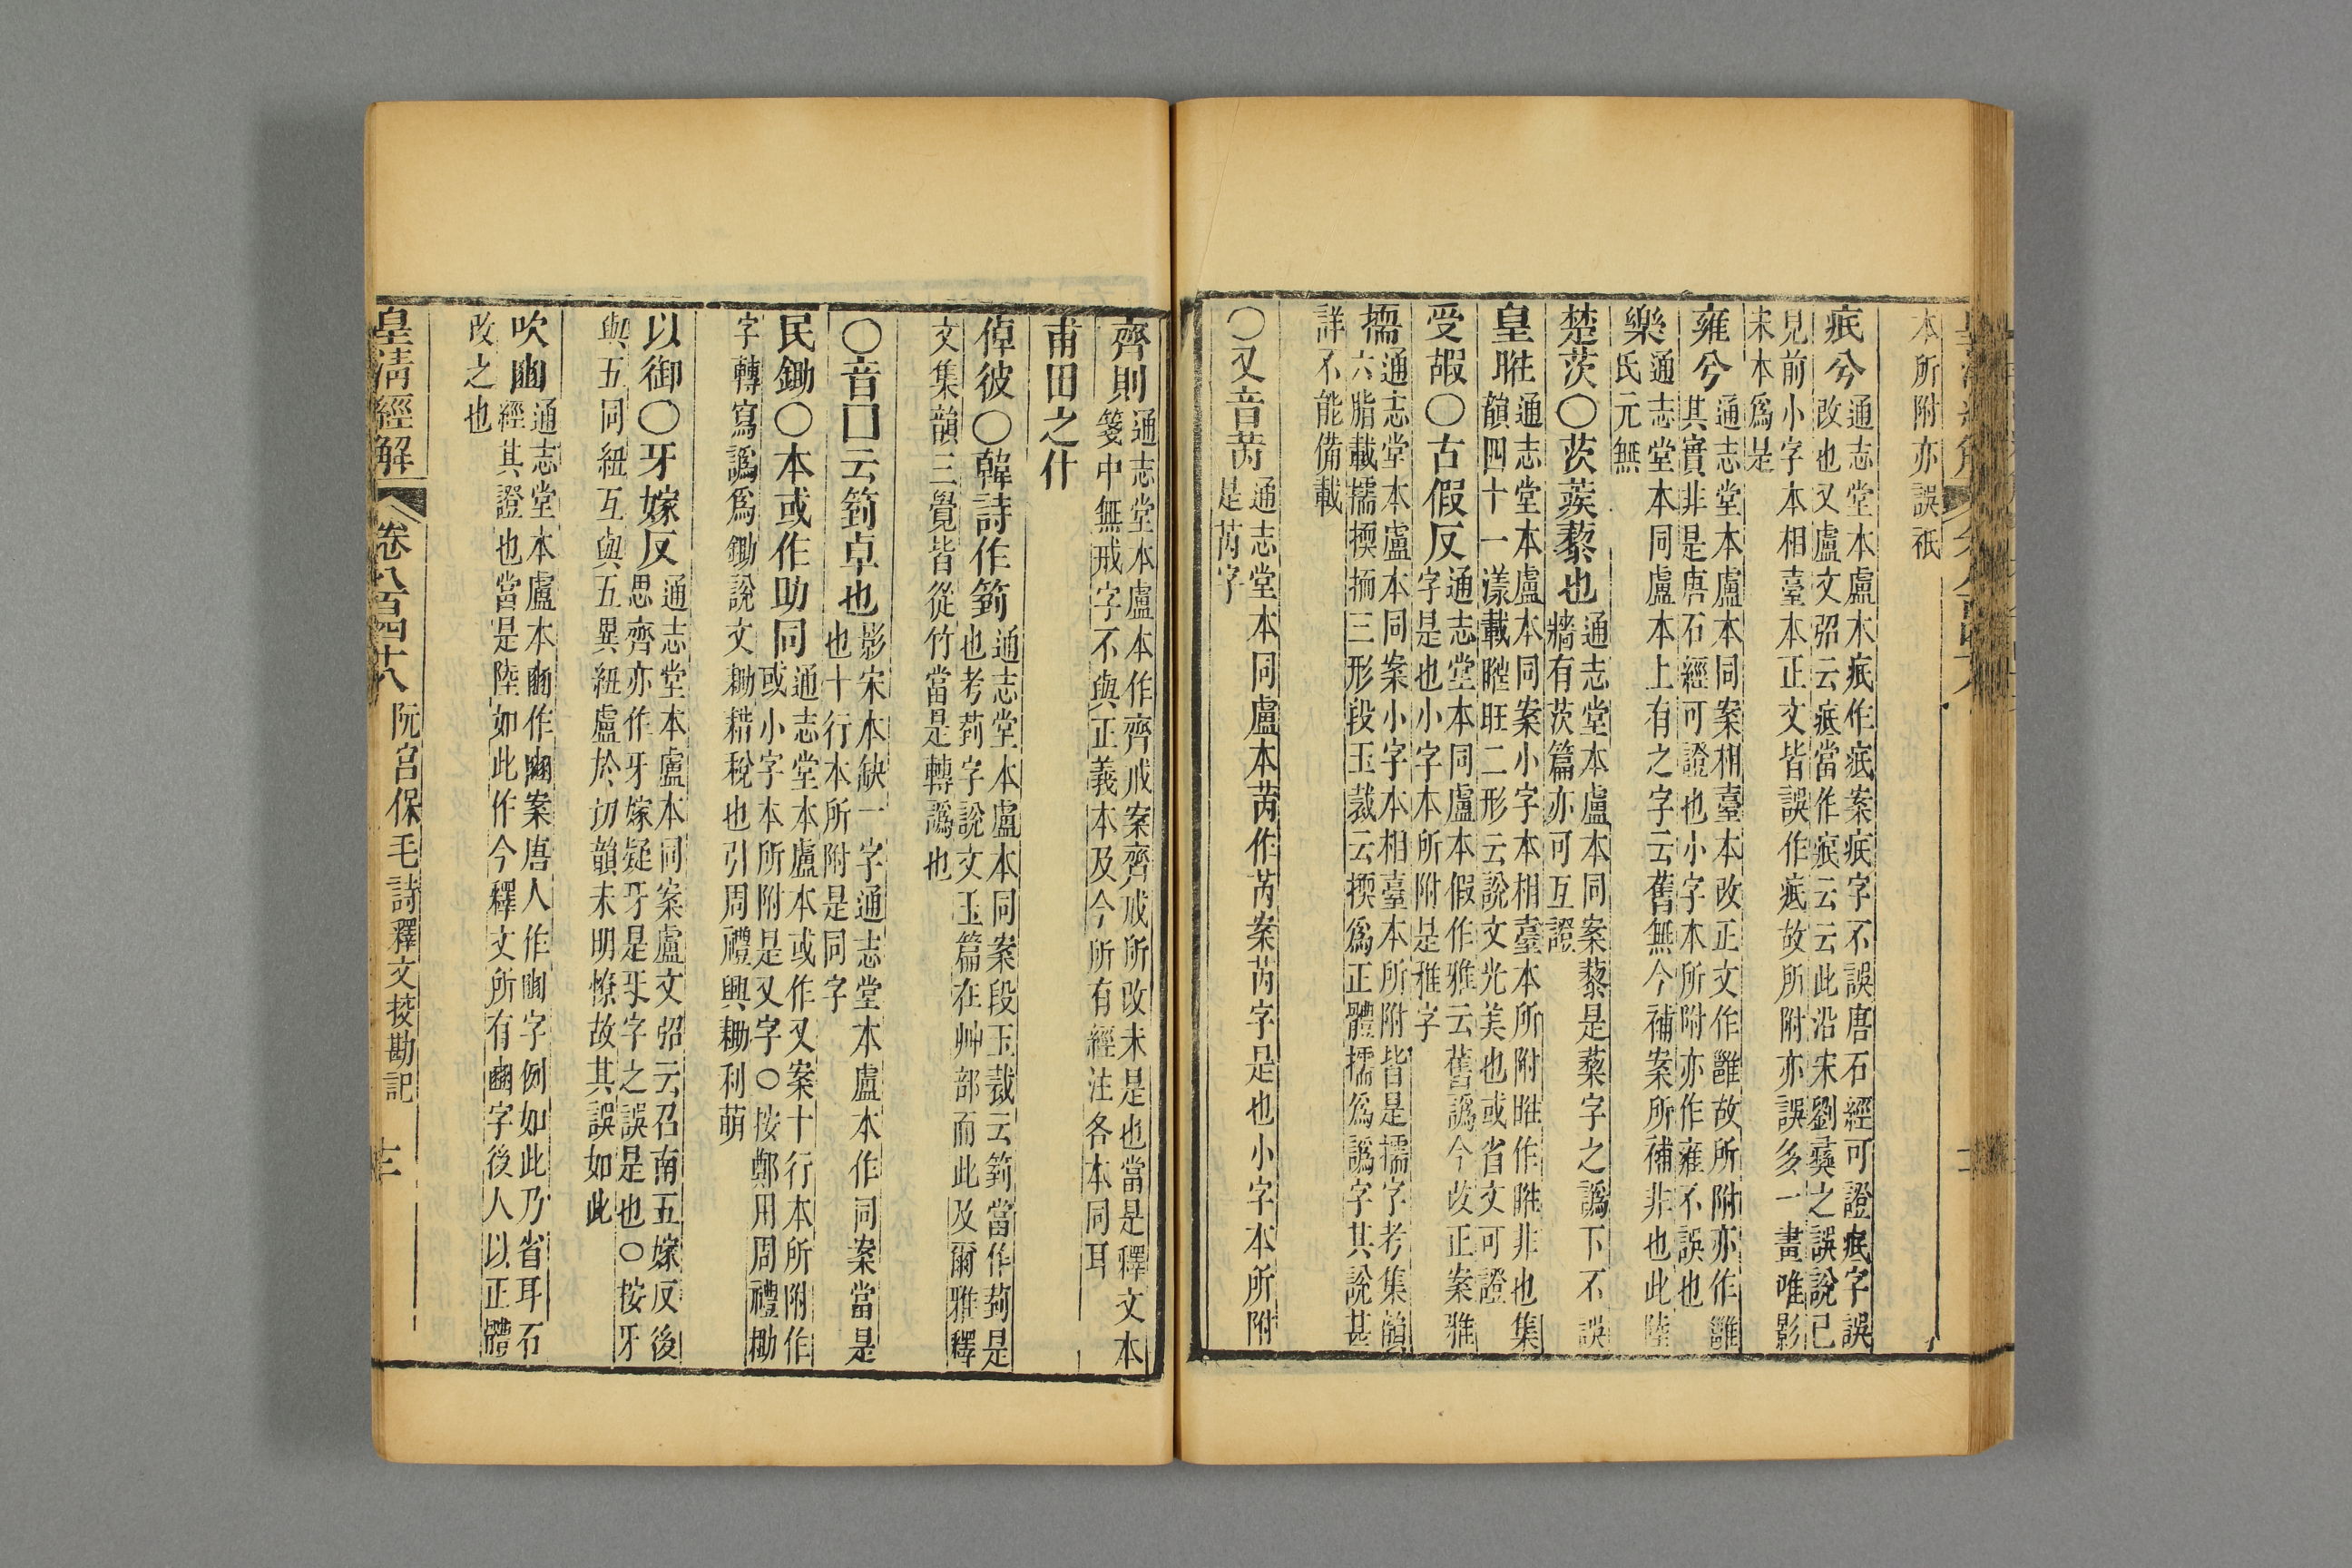 本所附亦誤祇
疧兮
通志堂本盧本疧作疷案疧字不誤唐石經可證疷字誤
改也又盧文弨云疷當作疧云云此沿宋劉彝之誤說已
見前小字本相臺本正文皆誤作疷故所附亦誤多一畫唯影
宋本爲是
雍兮
通志堂本盧本同案相臺本改正文作雝故所附亦作雝
其實非是唐石經可證也小字本所附亦作雍不誤也
樂
通志堂本同盧本上有之字云舊無今補案所補非也此陸
氏元無
楚茨〇茨蒺藜也
通志堂本盧本同案藜是蔾字之譌下不誤
牆有茨篇亦可互證
皇暀
通志堂本盧本同案小字本相臺本所附暀作暀非也集
韻四十一漾載暀旺二形云說文光美也或省文可證
受嘏〇古假反
通志堂本同盧本假作雅云舊譌今改正案雅
字是也小字本所附是雅字
擩
通志堂本盧本同案小字本相臺本所附皆是擩字考集韻
六脂載擩㨎抐三形段玉裁云㨎爲正體擩爲譌字其說甚
詳不能備載
〇又音芮
通志堂本同盧本芮作芮案芮字是也小字本所附
是芮字
齊則
通志堂本盧本作齊戒案齊戒所改未是也當是釋文本
箋中無戒字不與正義本及今所有經注各本同耳
甫田之什
倬彼〇韓詩作箌
通志堂本盧本同案段玉裁云箌當作菿是
也考菿字說文玉篇在艸部而此及爾雅釋
文集韻三覺皆從竹當是轉譌也
〇音囗云箌卓也
影宋本缺一字通志堂本盧本作同案當是
也十行本所附是同字
民鋤〇本或作助同
通志堂本盧本或作又案十行本所附作
或小字本所附是又字〇按鄭用周禮耡
字轉寫譌爲鋤說文耡耤稅也引周禮興耡利萌
以御〇牙嫁反
通志堂本盧本同案盧文弨云召南五嫁反後
思齊亦作牙嫁疑牙是㸦字之誤是也〇按牙
與五同紐互與五異紐盧於切韻未明憭故其誤如此
吹豳
通志堂本盧本豳作豳案唐人作豳字例如此乃省耳石
經其證也當是陸如此作今釋文所有豳字後人以正體
改之也
皇清經解 卷八百四十八 阮宮保毛詩釋文挍勘記 圭